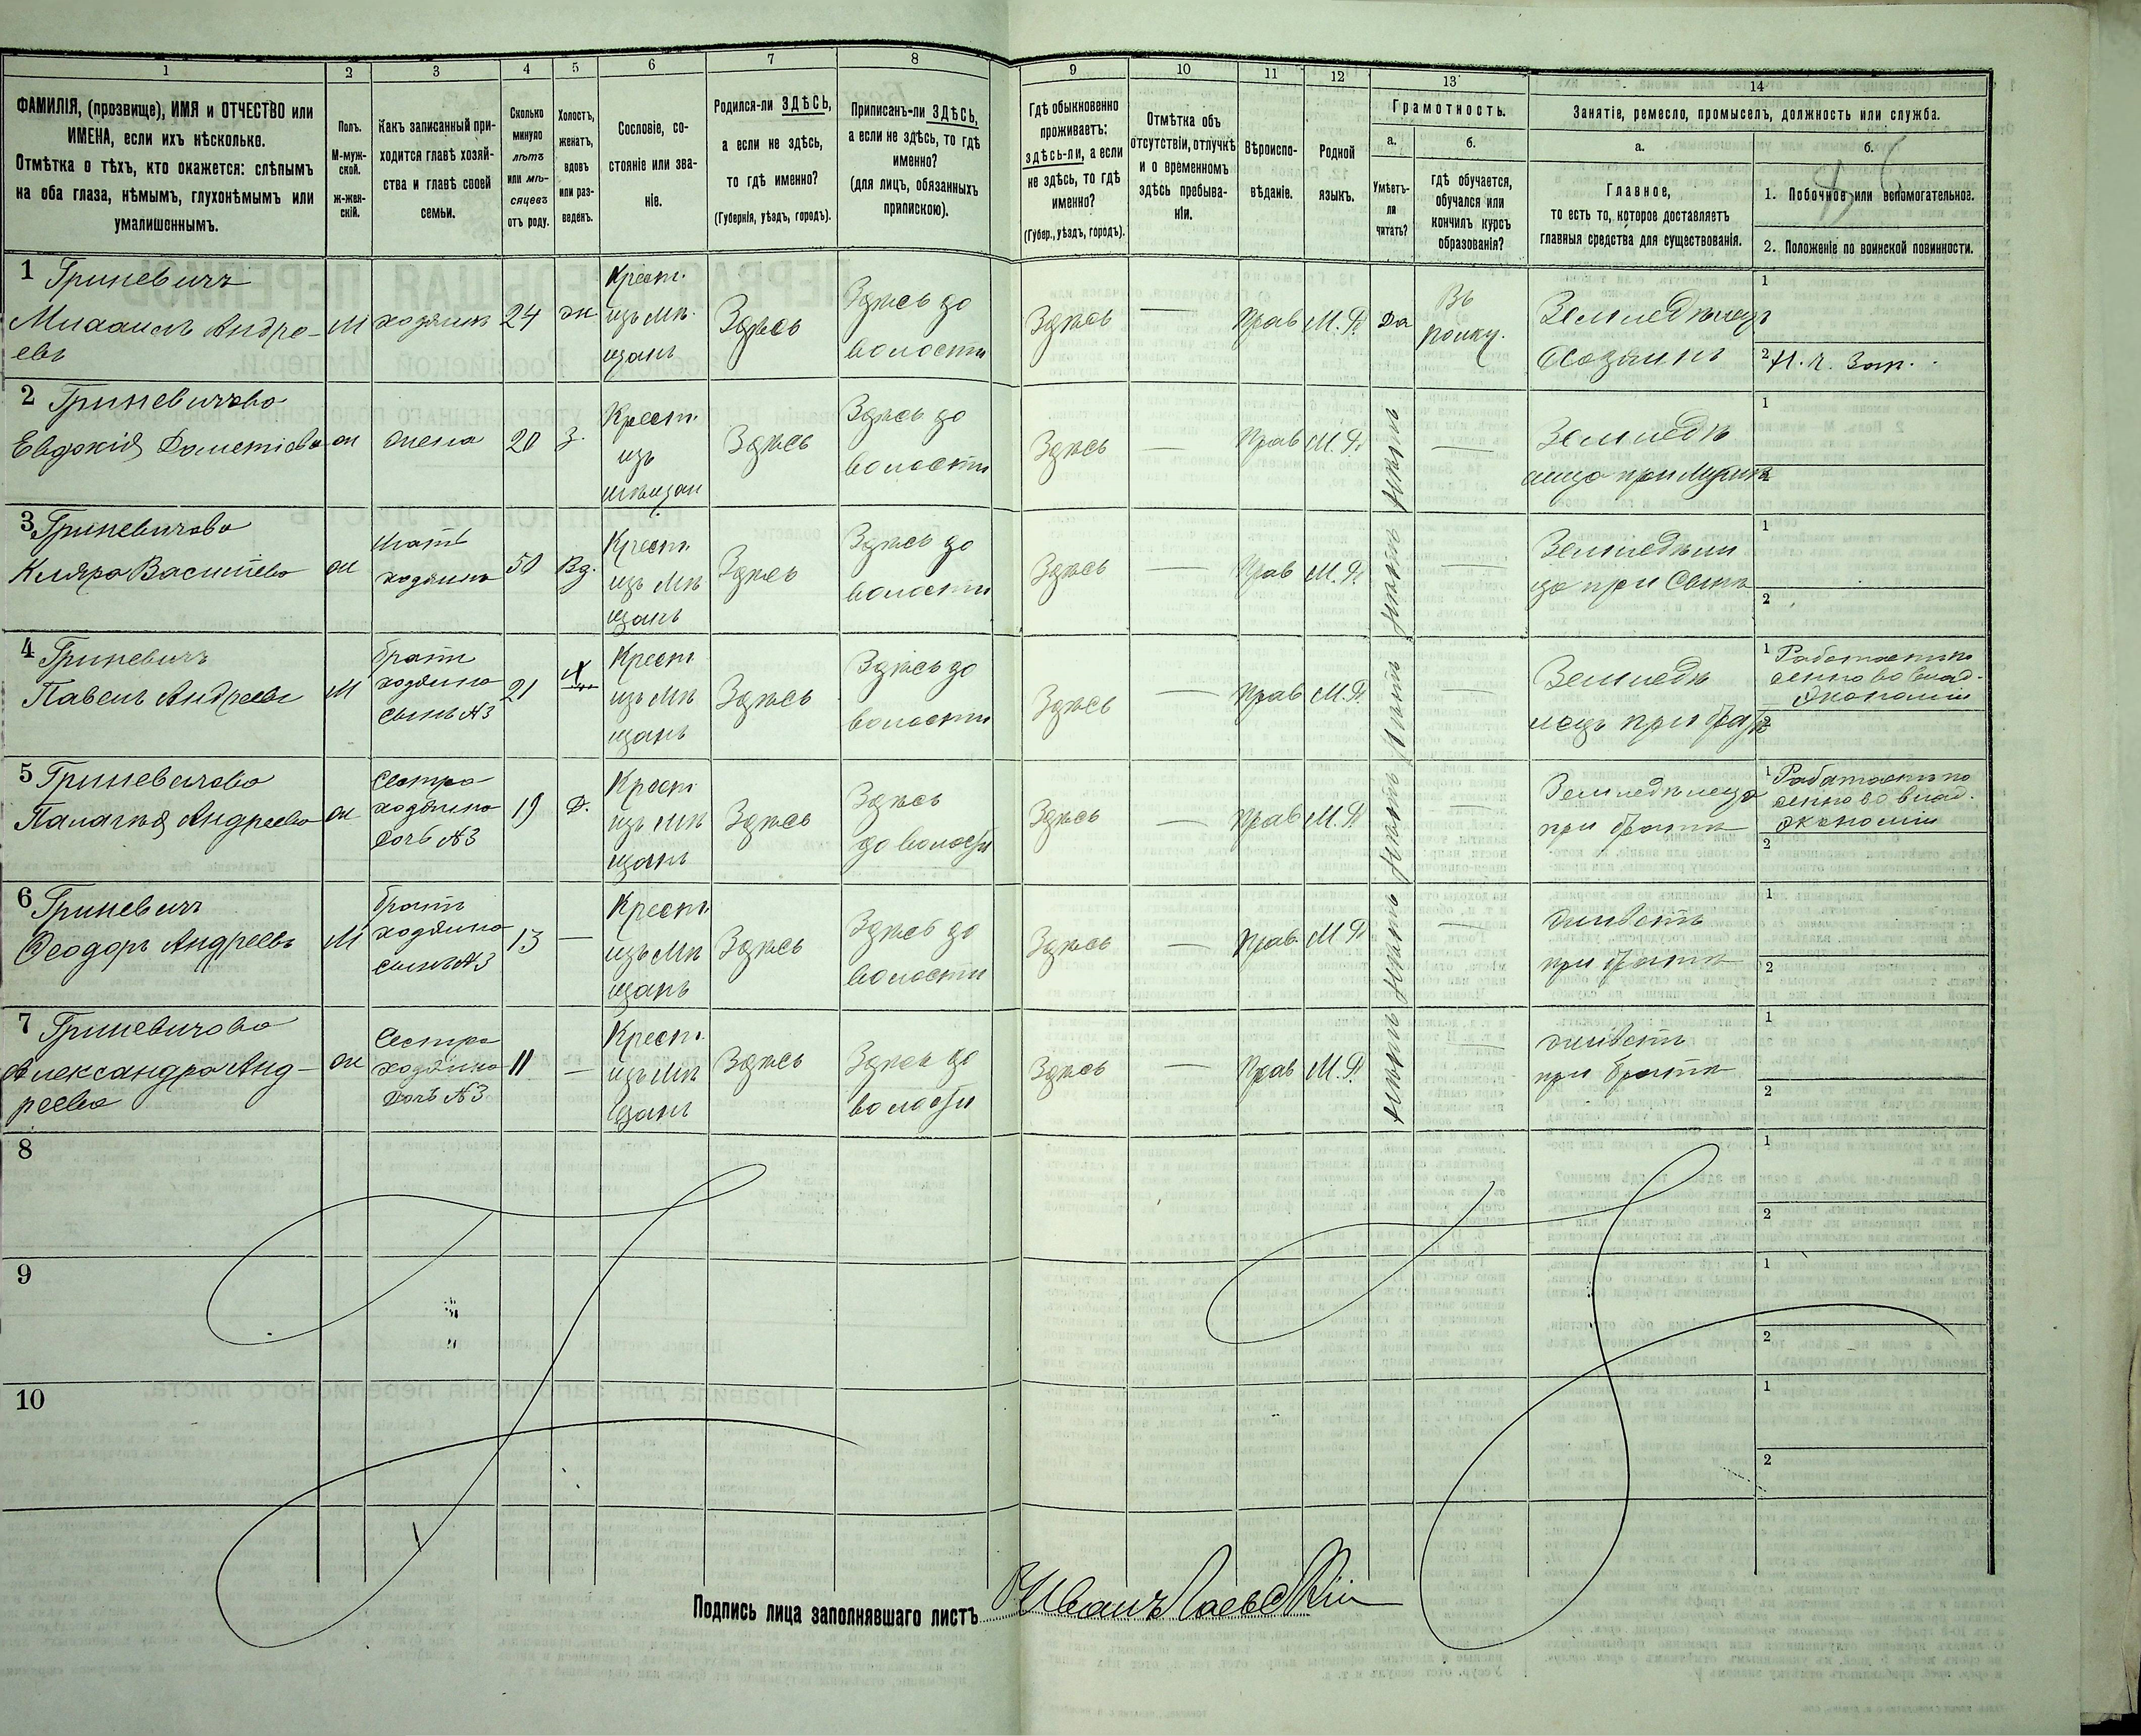 1 2 3 4 5 6 7 8 9 10 11 12 13 14
ФАМИЛІЯ, (прозвище), ИМЯ и ОТЧЕСТВО или
ИМЕНА, если ихъ нѣсколько.
Отмѣтка о тѣхъ, кто окажется: слѣпымъ
на оба глаза, нѣмымъ, глухонѣмымъ или
умалишеннымъ.
Полъ.
М-муж-
ской.
ж-жен-
скій.
Какъ записанный при-
ходится главѣ хозяй-
ства и главѣ своей
семьи.
Сколько
минуло
лѣтъ
или мѣ-
сяцевъ
отъ роду.
Холостъ,
женатъ,
вдовъ
или раз-
веденъ.
Сословіе, со-
стояніе или зва-
ніе.
Родился-ли ЗДѢСЬ,
а если не здѣсь,
то гдѣ именно?
(Губернія, уѣздъ, городъ).
Приписанъ-ли ЗДѢСЬ,
а если не здѣсь, то гдѣ
именно?
(для лицъ, обязанныхъ
припискою).
Гдѣ обыкновенно
проживаетъ:
здѣсь-ли, а если
не здѣсь, то гдѣ
именно?
(Губер., уѣздъ, городъ).
Отмѣтка объ
отсутствіи, отлучкѣ
и о временномъ
здѣсь пребыва-
ніи.
Вѣроиспо-
вѣданіе.
Родной
языкъ.
Грамотность.
а.
Умѣетъ-
ли
читать?
б.
гдѣ обучается,
обучался или
кончилъ курсъ
образованія?
Занятіе, ремесло, промыселъ, должность или служба.
а.
Главное,
то есть то, которое доставляетъ
главныя средства для существованія.
б.
1. Побочное или вспомогательное.
2. Положеніе по воинской повинности.
1 Гриневичъ
Михаилъ Андре-
евъ
М
хозяинъ
24
ж
Крест.
изъ Мѣ-
щанъ
Здѣсь
Здѣсь до
волости
Здѣсь
—
Прав
М. Р.
Да
Въ
полку.
Земледѣлецъ
Хозяинъ
1
2 Н. ч. Зап.
2 Гриневичова
Евдокія Дометіева
ж
жена
20
З.
Крест.
изъ
мѣщан
Здѣсь
Здѣсь до
волости
Здѣсь
—
Прав
М. Р.
Нѣтъ
—
Земледѣ
лица при мужѣ
1
2
3 Гриневичова
Кляра Васильева
ж
Мать
хозяина
50
Вд.
Крест.
изъ Мѣ
щанъ
Здѣсь
Здѣсь до
волости
Здѣсь
—
Прав
М. Р.
Нѣтъ
—
Земледѣли
ца при Сынѣ
1
2
4 Гриневичъ
Павелъ Андреевъ
М
братъ
хозяина
сынъ №3
21
Х
Крест
изъ Мѣ
щанъ
Здѣсь
Здѣсь до
волости
Здѣсь
—
Прав
М. Р.
Нѣтъ
—
Земледѣ
лецъ при братѣ
1 Работаетъ по
денно во влад.
Экономіи
2
5 Гриневичова
Палагея Андреева
ж
Сестра
хозяина
дочь №3
19
Д.
Крест
изъ Мѣ
щанъ
Здѣсь
Здѣсь
до волости
Здѣсь
—
Прав
М. Р.
Нѣтъ
—
Земледѣлица
при братѣ
1 Работаетъ по
денно во влад.
экономіи
2
6 Гриневичъ
Ѳеодоръ Андреевъ
М
братъ
хозяина
сынъ №3
13
—
Крест.
изъ Мѣ
щанъ
Здѣсь
Здѣсь до
волости
Здѣсь
—
Прав.
М. Р.
Нѣтъ
—
живетъ
при братѣ
1
2
7 Гриневичова
Александра Анд-
реева
ж
Сестра
хозяина
дочь №3
11
—
Крест.
изъ Мѣ
щанъ
Здѣсь
Здѣсь до
волости
Здѣсь
—
Прав
М. Р.
Нѣтъ
—
живетъ
при братѣ
1
2
8
1
2
9
1
2
10
1
2
Подпись лица заполнявшаго листъ